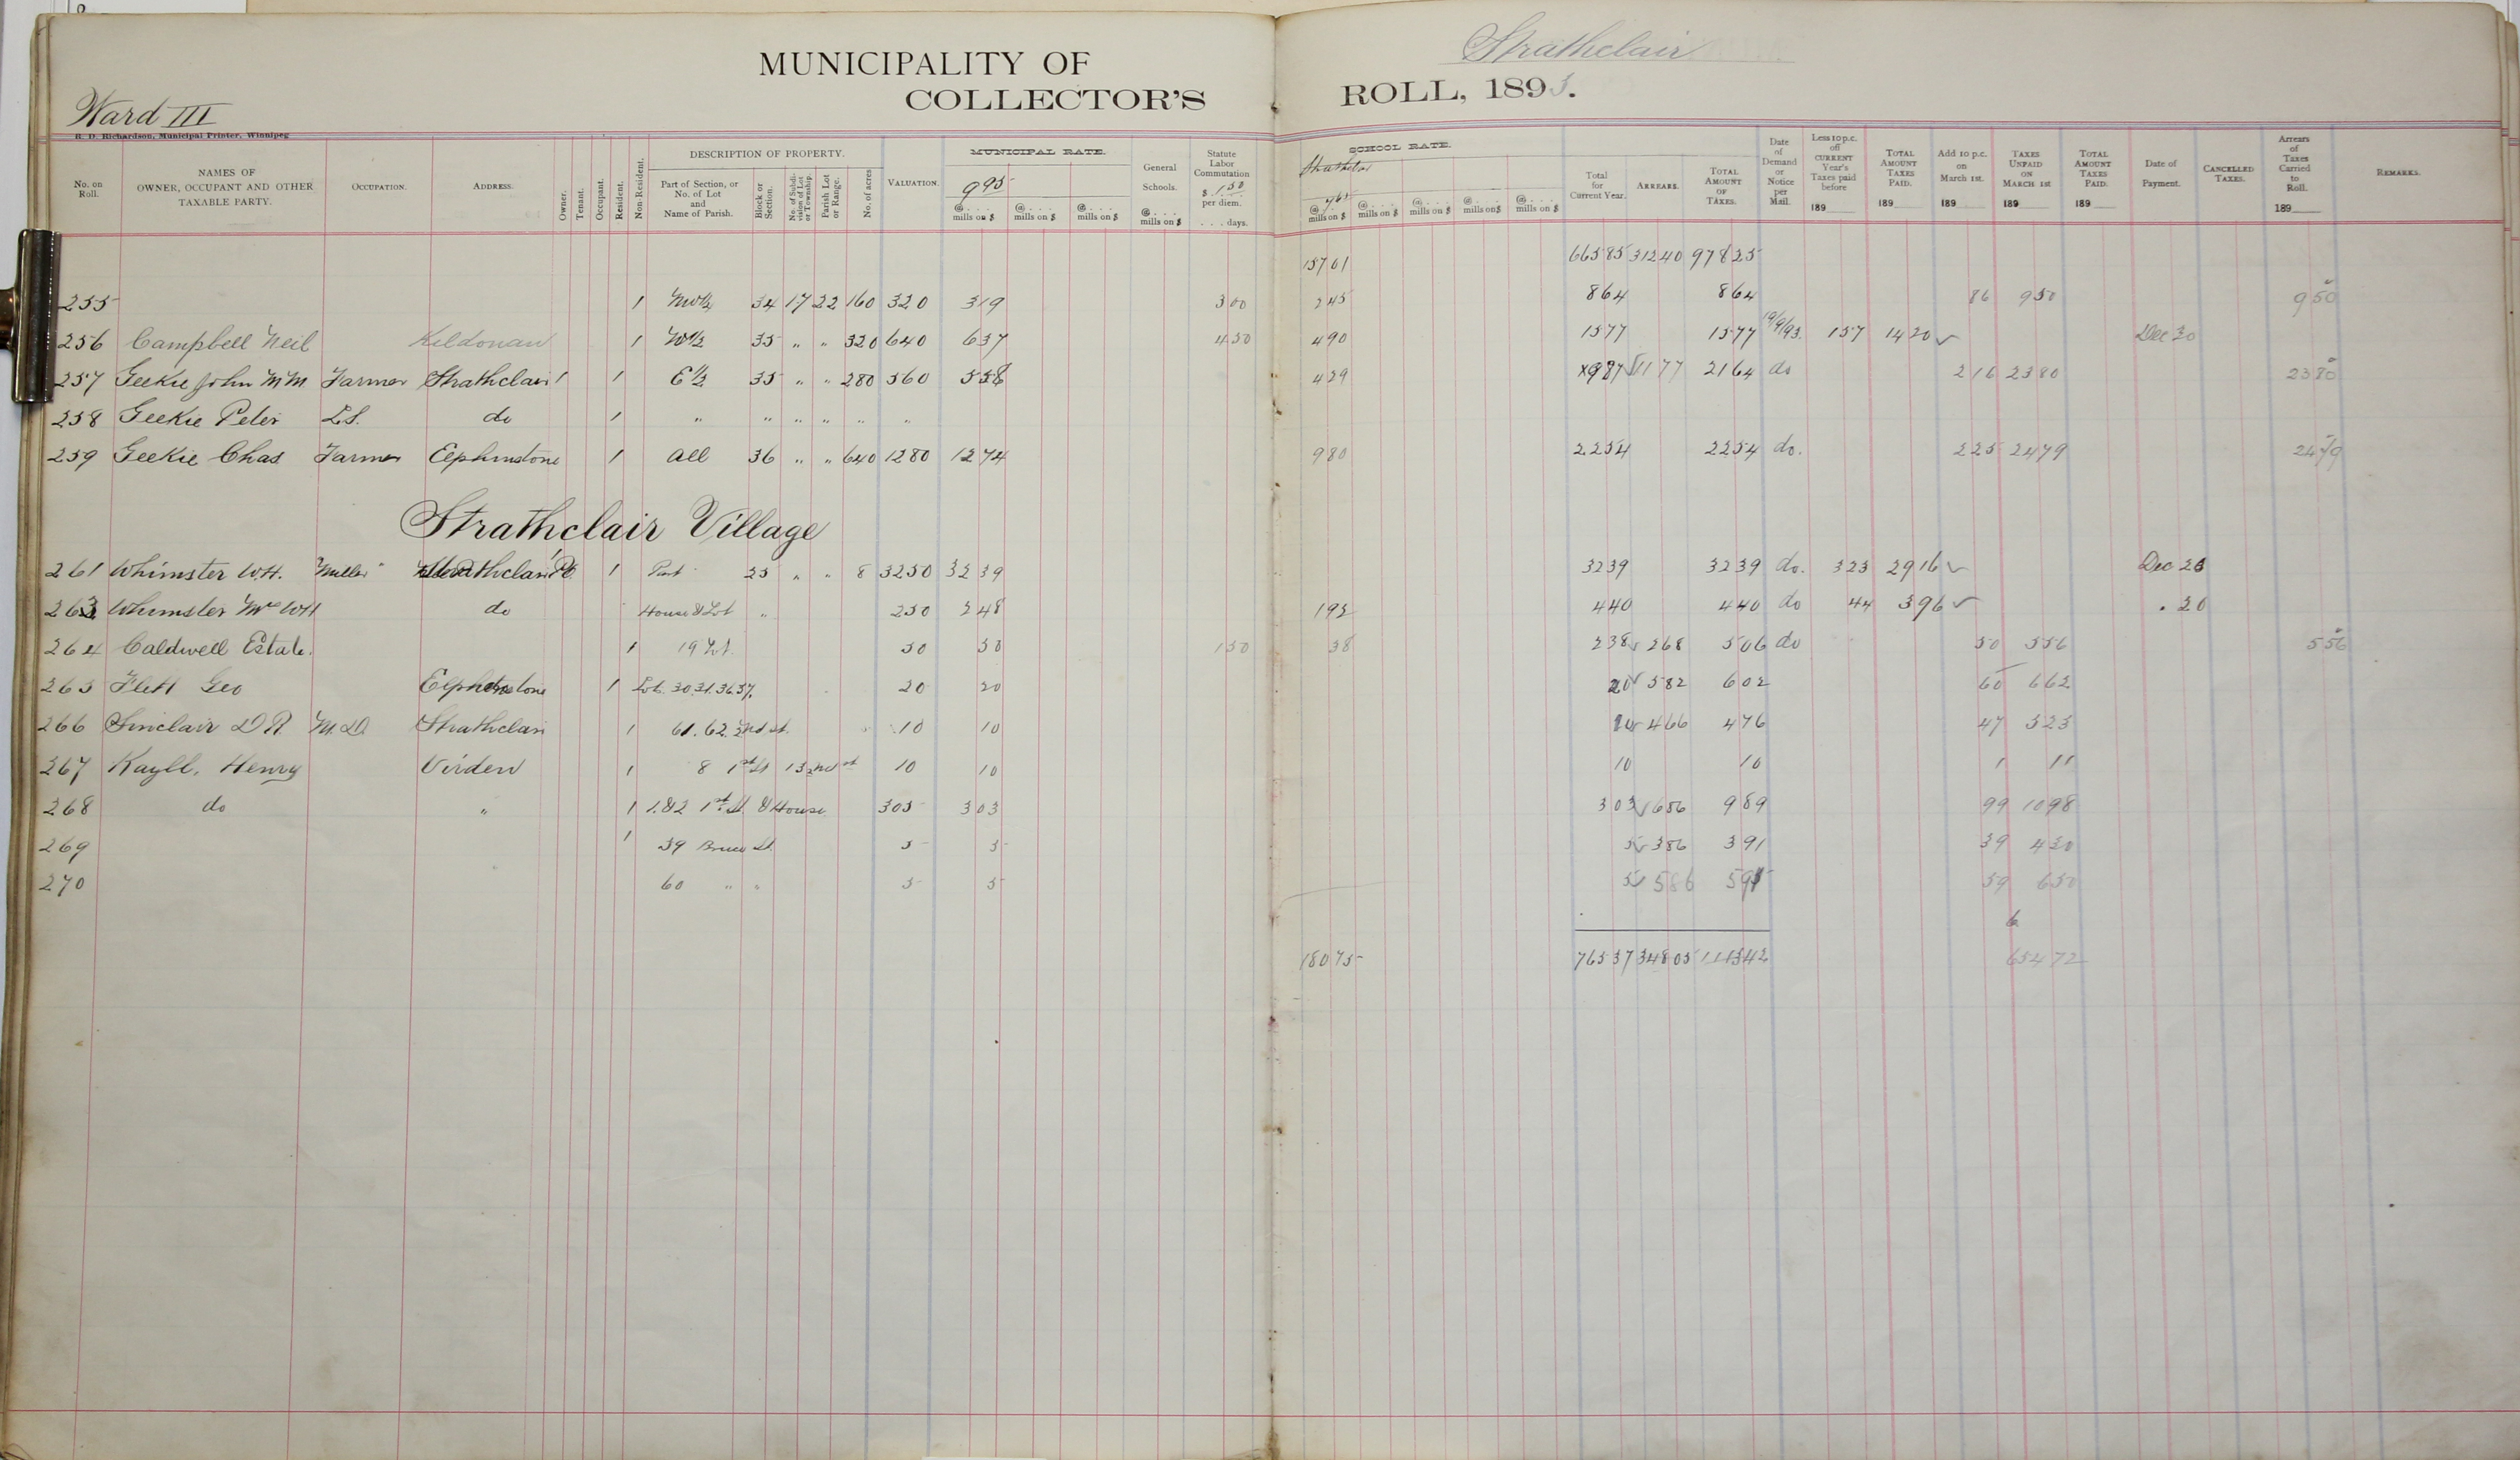 MUNICIPALITY OF Strathclair
COLLECTOR'S ROLL, 1893.
Ward III
R. D. Richardson, Municipal Printer, Winnipeg
No. on Roll. NAMES OF OWNER, OCCUPANT AND OTHER TAXABLE PARTY. OCCUPATION. ADDRESS. Owner. Tenant. Occupant. Resident. Non-Resident. DESCRIPTION OF PROPERTY. Part of Section, or No. of Lot and Name of Parish. Block or Section. No. of Subdivision of Lot or Township. Parish Lot or Range. No. of acres VALUATION. MUNICIPAL RATE. 995 @ . . . mills on $ @ . . . mills on $ @ . . . mills on $ General Schools. @ . . . mills on $ Statute Labor Commutation $ 1.50 per diem. . . . days. SCHOOL RATE. Strathclair 765 @ mills on $ @ . . . mills on $ @ . . . mills on $ @ . . . mills on $ @ . . . mills on $ Total for Current Year. ARREARS. TOTAL AMOUNT OF TAXES. Date of Demand or Notice per Mail. Less 10 p.c. off CURRENT Year's Taxes paid before 189 TOTAL AMOUNT TAXES PAID. 189 Add 10 p.c. on March 1st. 189 TAXES UNPAID ON MARCH 1st 189 TOTAL AMOUNT TAXES PAID. 189 Date of Payment. CANCELLED TAXES. Arrears of Taxes Carried to Roll. 189 REMARKS.
15761 66585 31240 97825
255 1 NW¼ 34 17 22 160 320 319 300 245 864 864 86 950 950
256 Campbell Neil Kildonan 1 W½ 35 " " 320 640 637 450 490 1577 1577 19/9/93. 157 1420 ✓ Dec 20
257 Geekie John M M Farmer Strathclair 1 1 E½ 35 " " 280 560 558 429 x987 ✓ 1177 2164 do 216 2380 2380
258 Geekie Peter L.S. do 1 " " " " " "
259 Geekie Chas Farmer Elphinstone 1 all 36 " " 640 1280 1274 980 2254 2254 do. 225 2479 2479
Strathclair Village
261 Whimster W.H. Miller Strathclair 1 Part 25 " " 8 3250 3239 3239 3239 do. 323 2916 ✓ Dec 20
263 Whimster Mrs WH do House & Lot " 250 248 192 440 440 do 44 396 ✓ . 20
264 Caldwell Estate. 1 19 Lot 50 50 150 38 238 ✓ 268 506 do 50 556 556
265 Flett Geo Elphinstone 1 Lots 30.31.36.37. 20 20 20 ✓ 582 602 60 662
266 Sinclair D R M.D. Strathclair 1 61. 62. 2nd st. 10 10 10 ✓ 466 476 47 523
267 Kayll, Henry Virden 1 8 1st St 13 2nd st 10 10 10 10 1 11
268 do " 1 1.&2 1st St. & House 305 303 303 ✓ 686 989 99 1098
269 1 59 Bruce St. 5 5 5 ✓ 386 391 39 430
270 60 " " 5 5 5 ✓ 586 591 59 650
6
18075 76537 34805 111342 65472